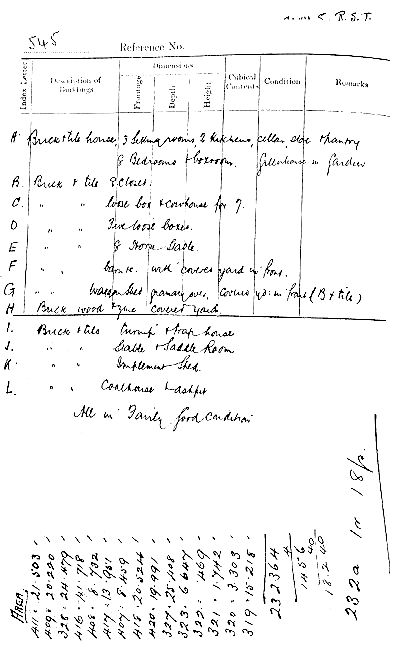 R. S. T.
545
Reference No.
Index Letter
Description of Buildings
Dimensions
Frontage
Depth
Height
Cubical Contents
Condition
Remarks
A Brick & tile house, 3 Sitting rooms 2 Kitchens, cellar & Pantry
8 Bedrooms & boxroom. Greenhouse in Garden
B. Brick & tile closet.
C. " " loose box & cowhouse for 7.
D " " Five loose boxes.
E " " 8 Horse Stable.
F " " Barn with covered yard in front.
G " " Waggon Shed granary over, covered yd. in front (B & tile)
H Brick wood & zinc covered yard
I. Brick & tile trap house
J. " " Stable & Saddle Room
K " " Implement Shed.
L. " " Coalhouse & ashpit
All in Fairly good condition
AREA
411 . 21.503
409 . 20.220
328 . 24.479
416 . 14.718
408 . 8.732
417 . 13.981
407 . 8.459
418 . 20.524
420 . 19.991
327 . 25.408
323 . 6.647
322 . .469
321 . 1.742
320 . 3.303
319 . 15.218
232364
4
1456
40
18240
232a 1r 18p.